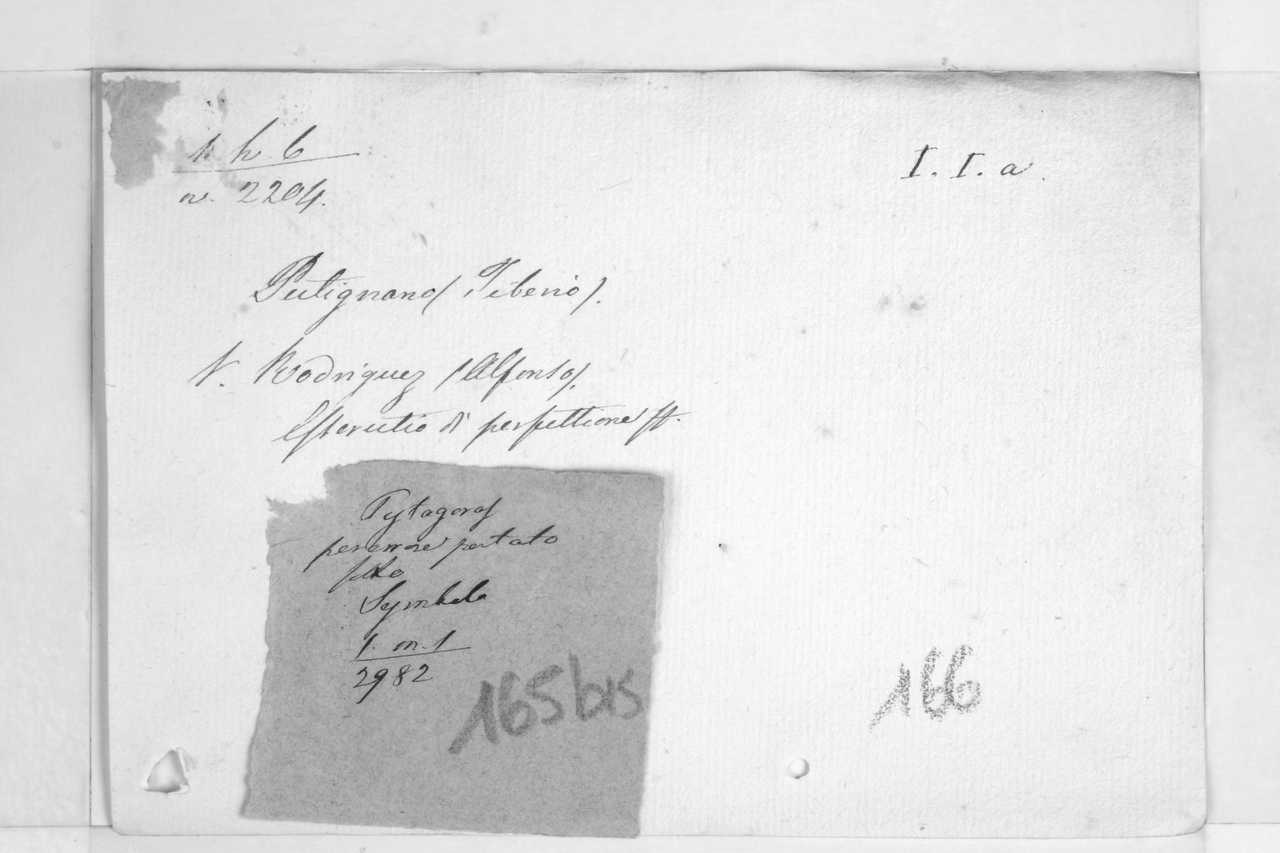 1. h. 6
n. 2204.
I. I. a.
Putignano (Tiberio).
V. Rodriguez (Alfonso).
Essercitio di perfettione
Pytagoras
per errore portato
sotto
Symbola
1. m. 1
2982
165 bis
166